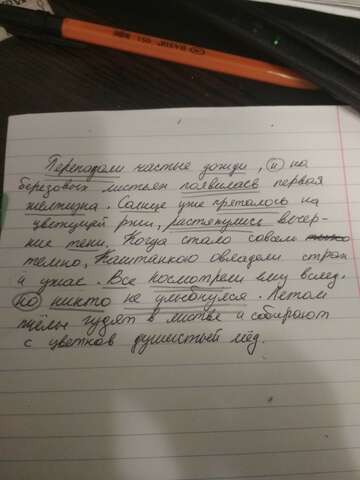 Перепадали частые дожди, и на
березовых листьях появилась первая
желтизна. Солнце уже пряталось на
цветущей ржи, растянулись вечер-
ние тени. Когда стало совсем
темно, Каштанкою овладели страх
и ужас. Все посмотрели ему вслед.
но никто не улыбнулся. Летом
пчёлы гудят в листве и собирают
с цветков душистый мёд.